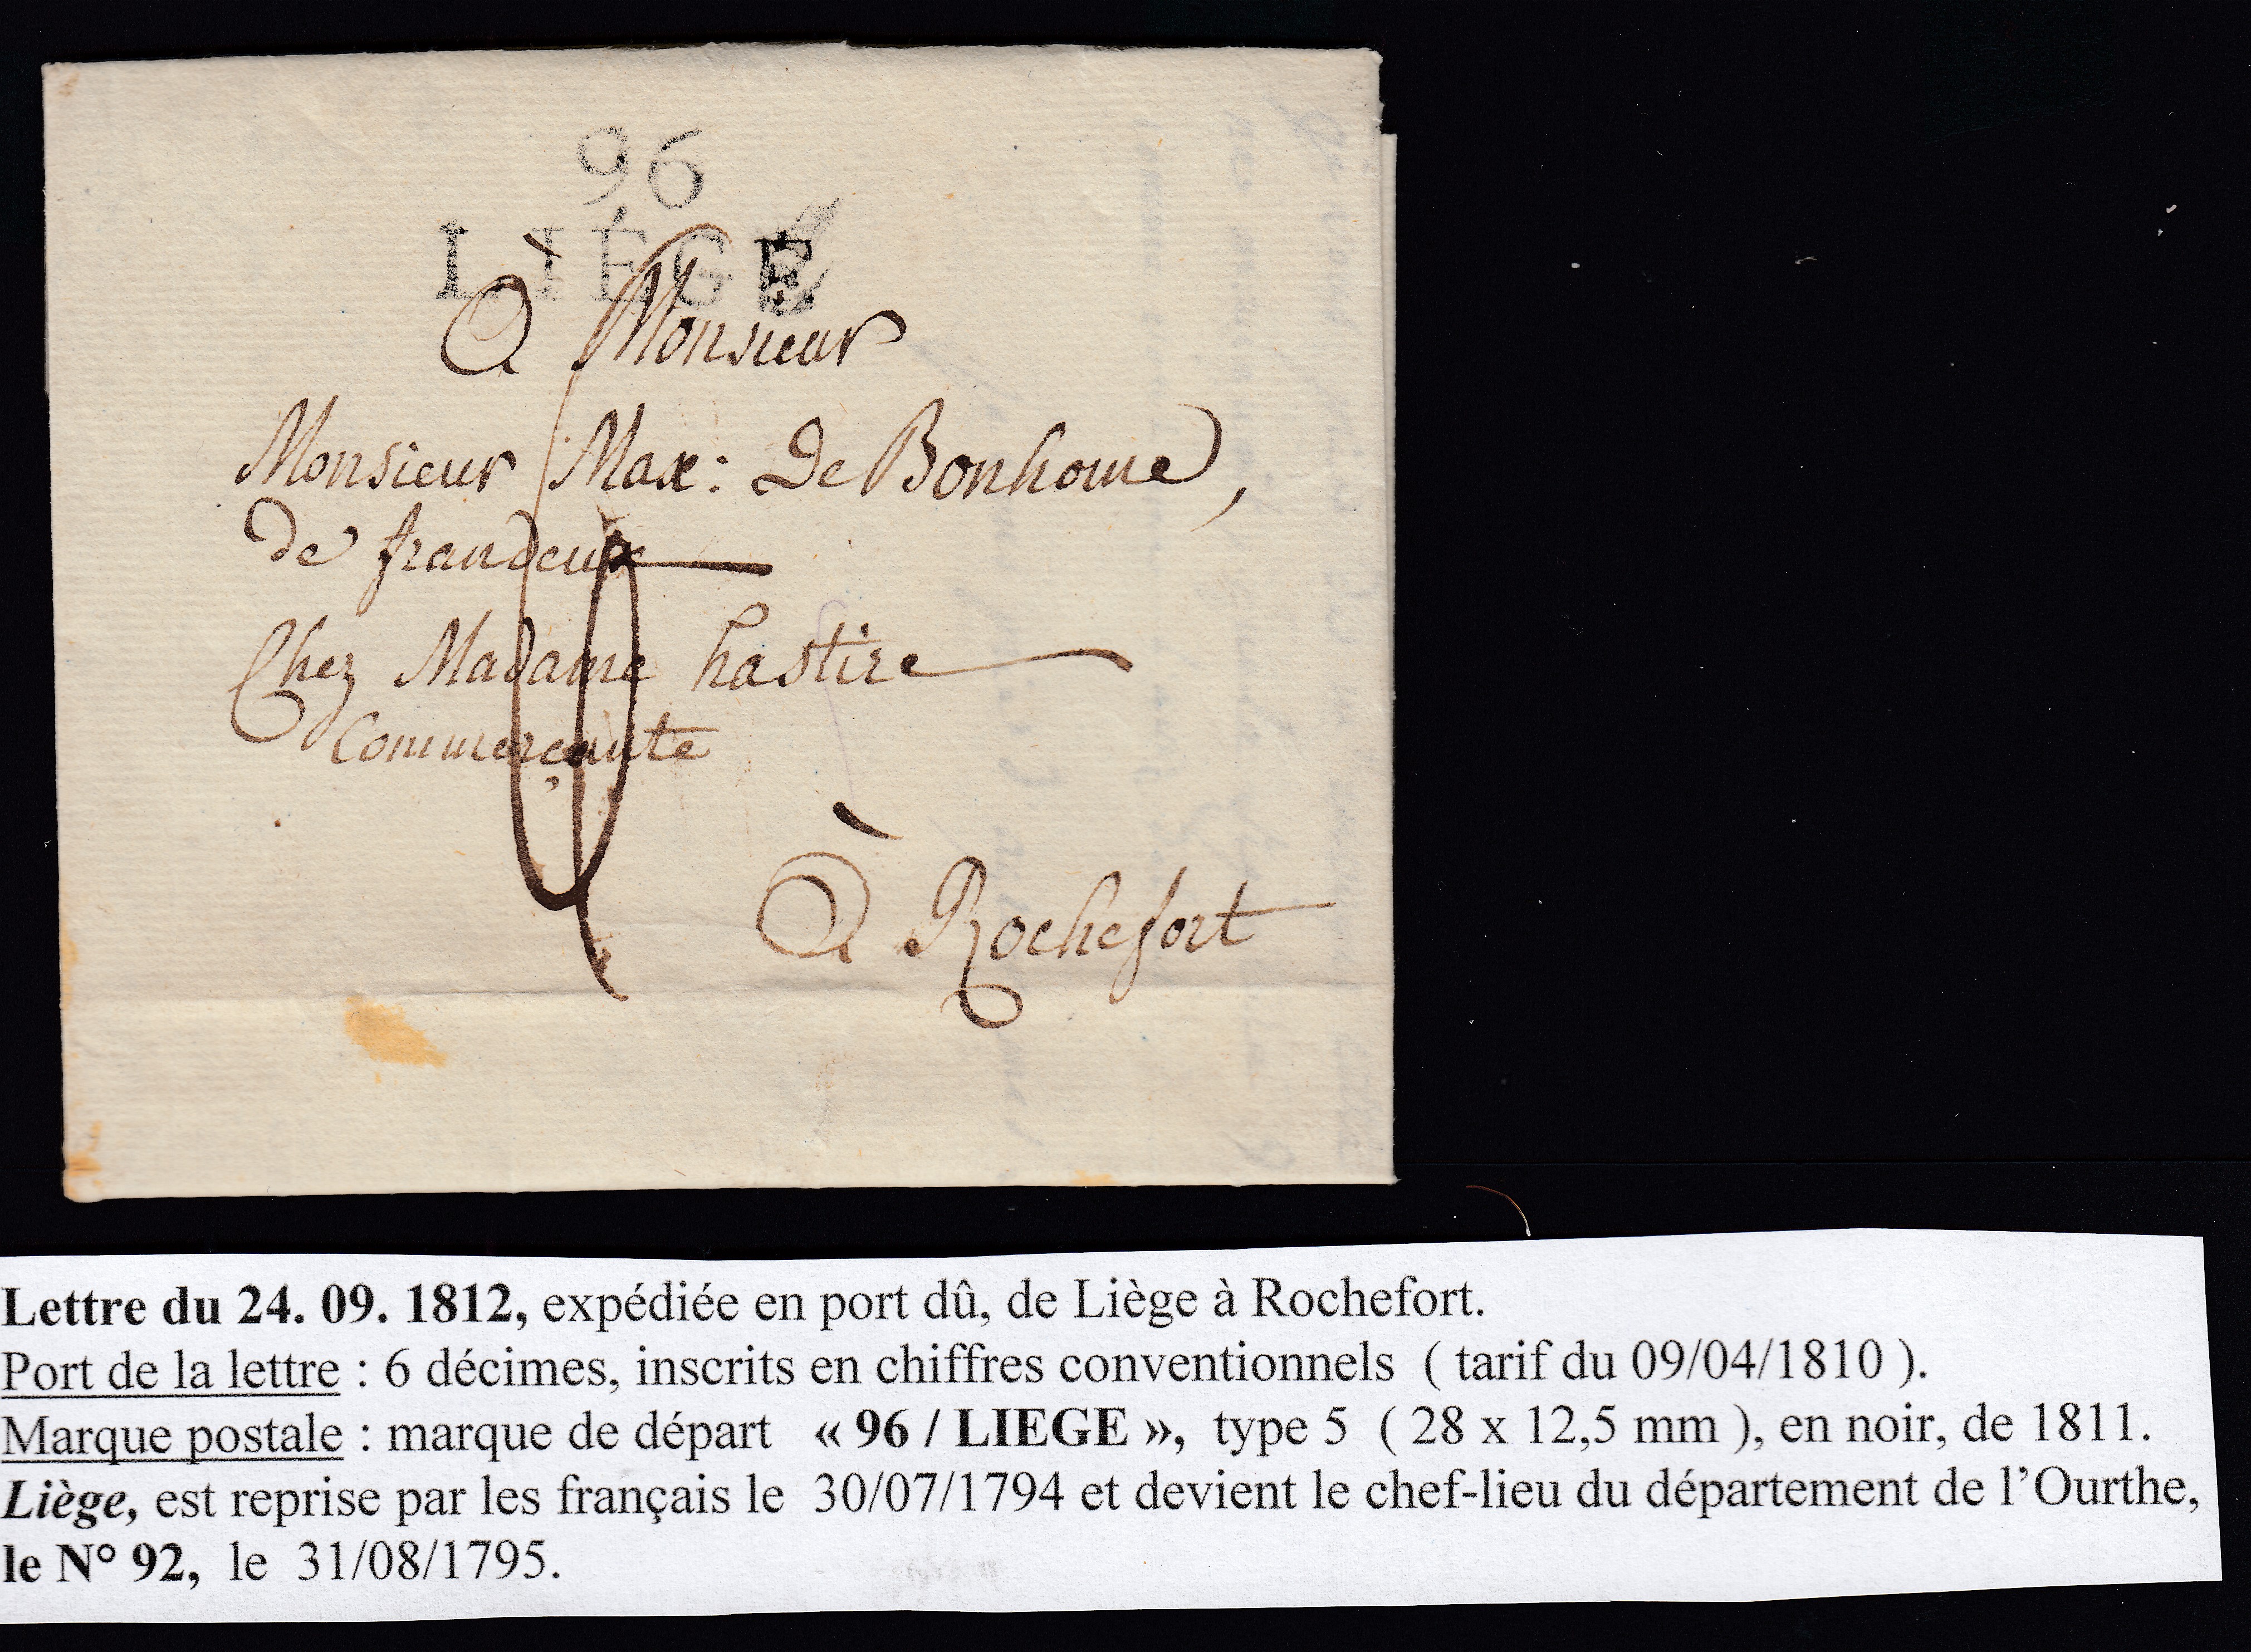 96
LIÉGE
À Monsieur
Monsieur Max: De Bonhome,
de frandeux
Chez Madame hastire
Commerçante
À Rochefort
Lettre du 24. 09. 1812, expédiée en port dû, de Liège à Rochefort.
Port de la lettre : 6 décimes, inscrits en chiffres conventionnels ( tarif du 09/04/1810 ).
Marque postale : marque de départ « 96 / LIEGE », type 5 ( 28 x 12,5 mm ), en noir, de 1811.
Liège, est reprise par les français le 30/07/1794 et devient le chef-lieu du département de l’Ourthe,
le N° 92, le 31/08/1795.